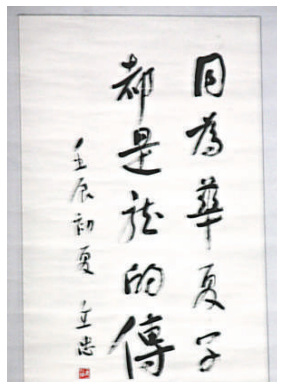 同為華夏子
都是龙的傳
壬辰初夏 圭忠